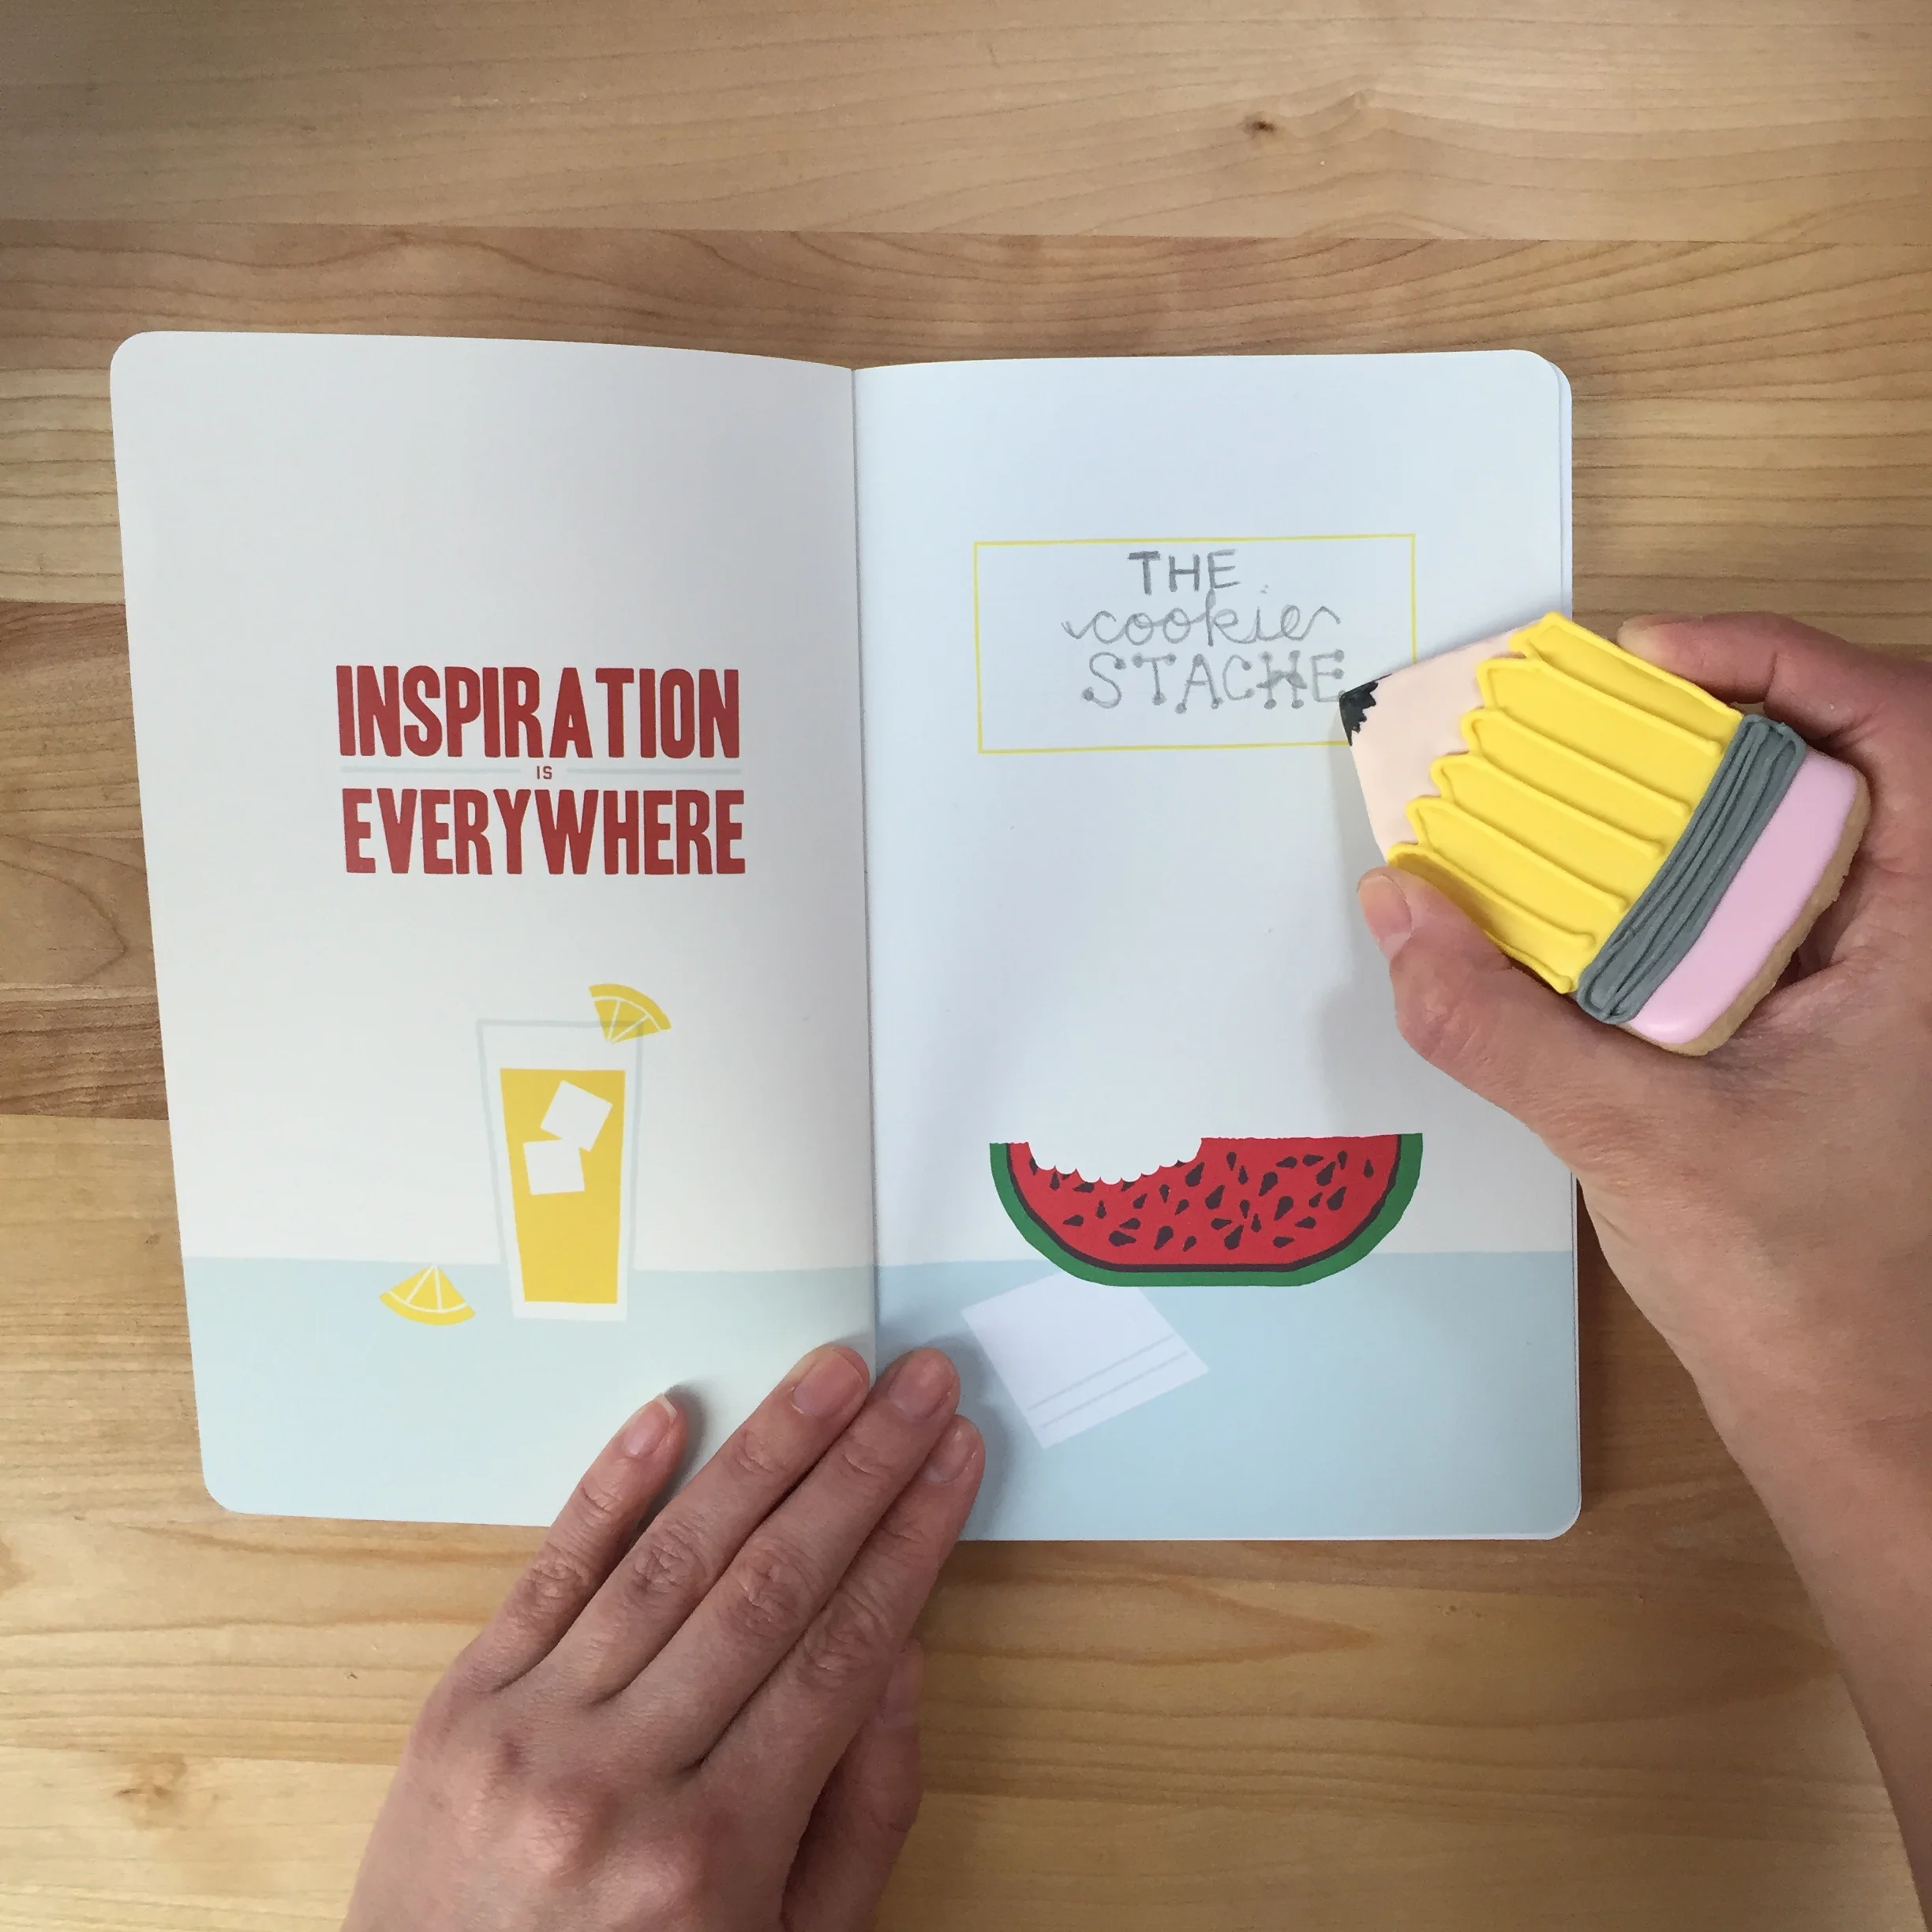 INSPIRATION
IS
EVERYWHERE
THE
cookie
STACHE